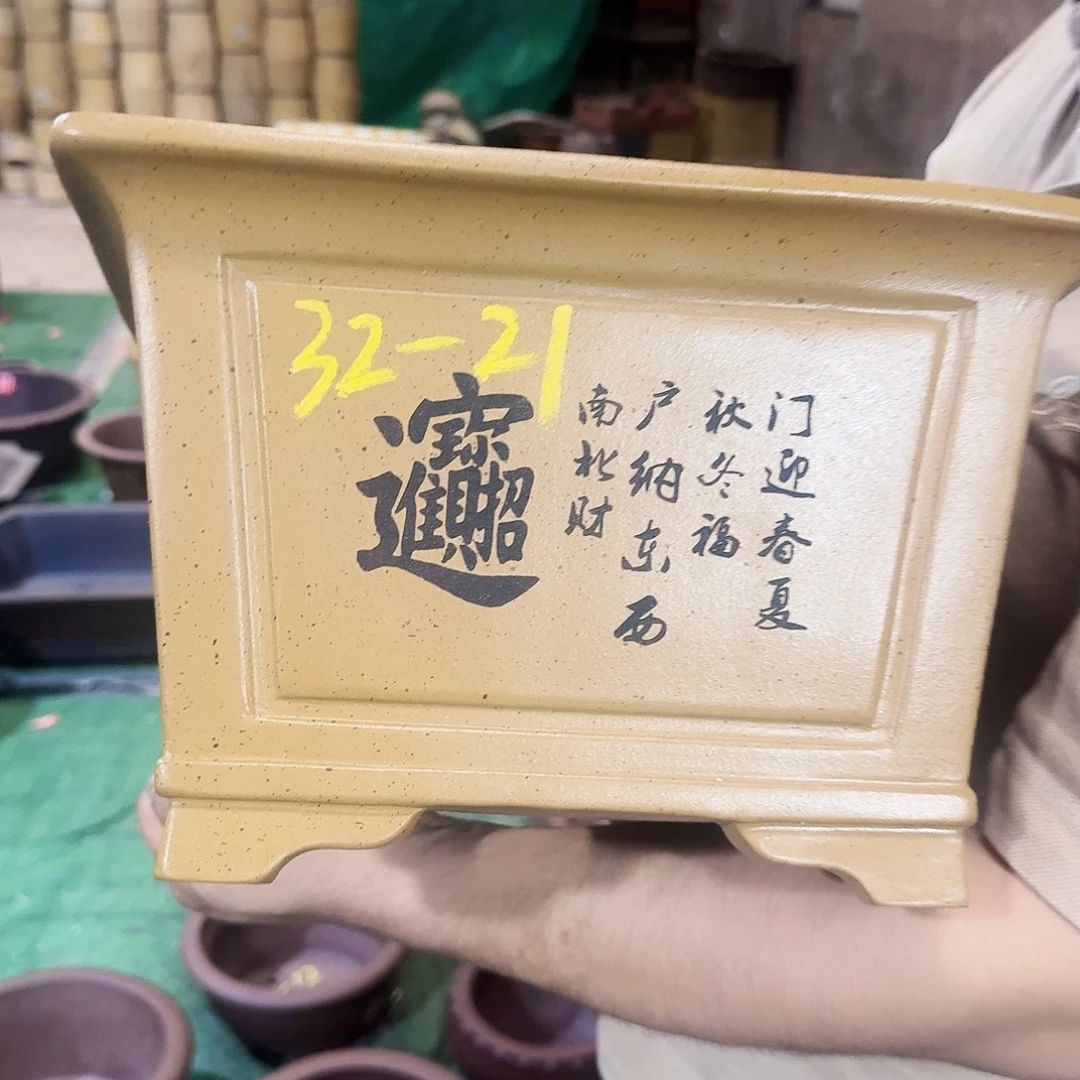 32-21
招財進寶
门迎春夏
秋冬福
户纳东西
南北财